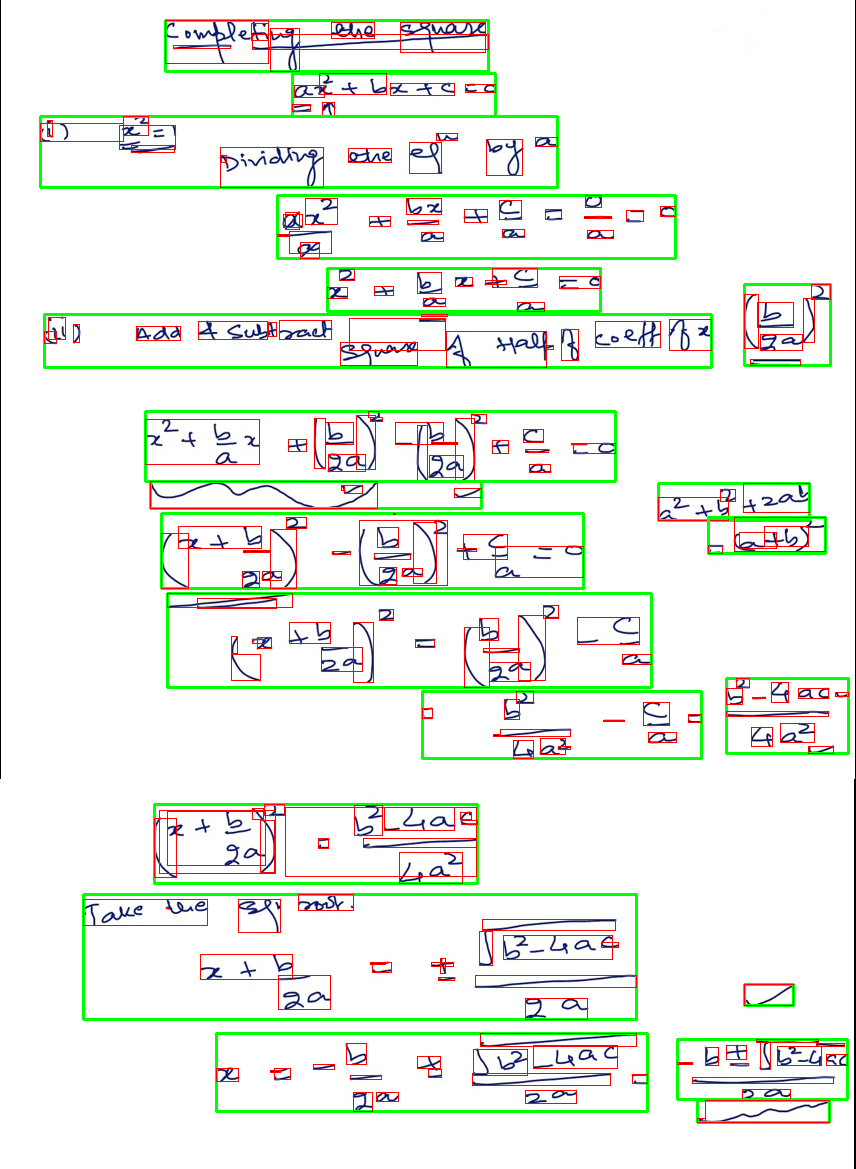 Completing the square
ax² + bx + c = 0
= 1
(i) x² = 1
Dividing the eqⁿ by a
ax²/a + bx/a + c/a = 0/a = 0
x² + b/a x + c/a = 0
(ii) Add & Subtract square of Half of coeff of x (b/2a)²
x² + b/a x + (b/2a)² - (b/2a)² + c/a = 0
a² + b² + 2ab
= (a+b)²
(x + b/2a)² - (b/2a)² + c/a = 0
(x + b/2a)² = (b/2a)² - c/a
= b²/4a² - c/a = b² - 4ac/4a²
(x + b/2a)² = b² - 4ac/4a²
Take the sq root.
x + b/2a = ± √b² - 4ac/2a
x = - b/2a ± √b² - 4ac/2a = - b ± √b² - 4ac/2a